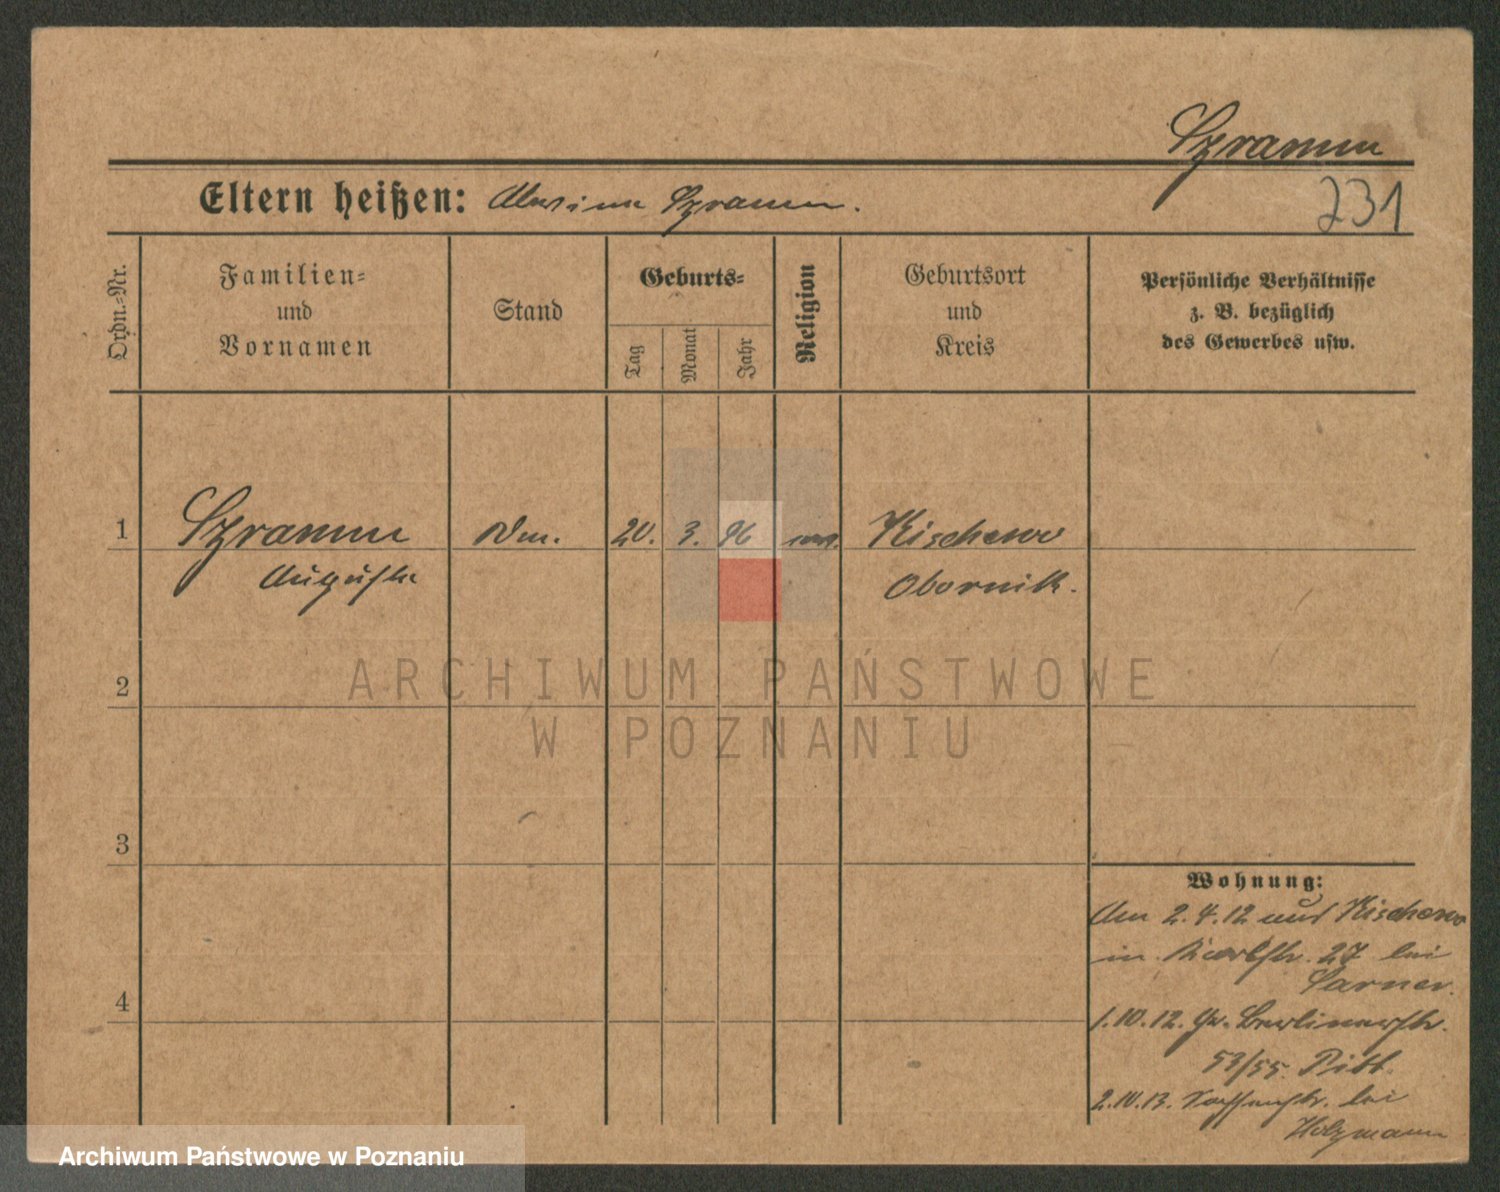 Szramm
Eltern heißen: Szramm.
231
Ordn.-Nr.
Familien-
und
Vornamen
Stand
Geburts-
Tag
Monat
Jahr
Religion
Geburtsort
und
Kreis
Persönliche Verhältnisse
z. B. bezüglich
des Gewerbes usw.
1
Szramm
20. 3. 96
Kischewo
Auguste
Obornik.
2
ARCHIWUM PAŃSTWOWE
W POZNANIU
3
Wohnung:
Am 2.4.12 aus Kischewo
in 27 bei
Sarner.
1.10.12. Gr. Berlinerstr.
53/55.
2.10.13. bei
Holzmann
4
Archiwum Państwowe w Poznaniu